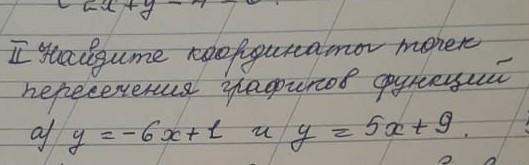 2x+y-4=0
II Найдите координаты точек
пересечения графиков функций
а) y = -6x+1 и y = 5x+9.